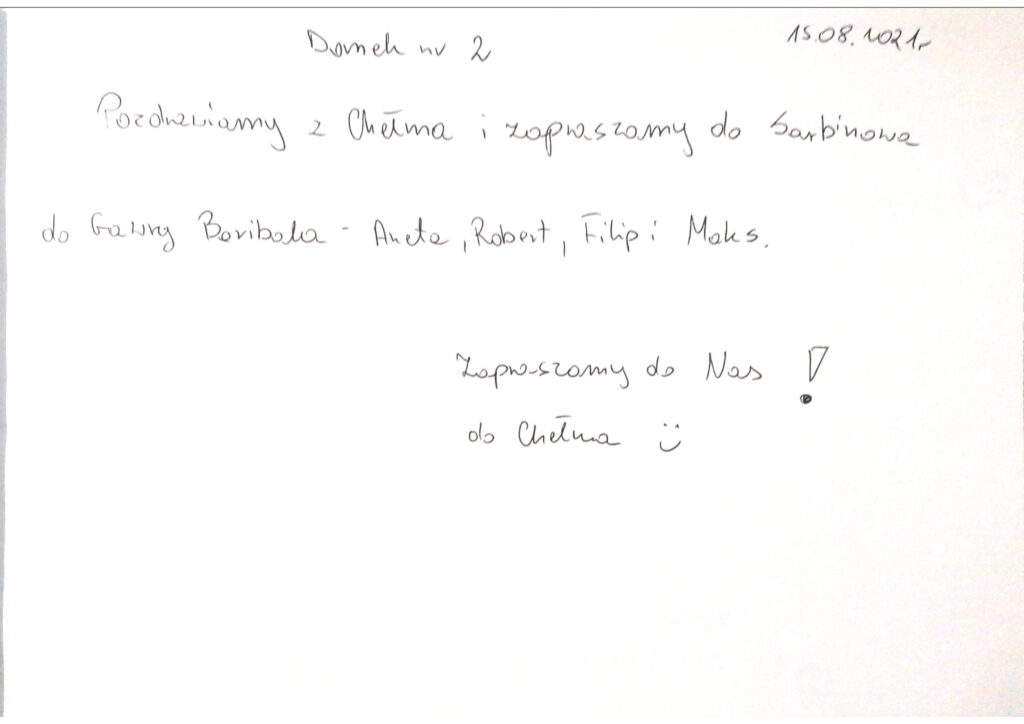 Domek nr 2
15.08.2021r
Pozdrawiamy z Chełma i zapraszamy do Sarbinowa
do Gawry Baribala - Aneta, Robert, Filip i Maks.
Zapraszamy do Nas !
do Chełma :)